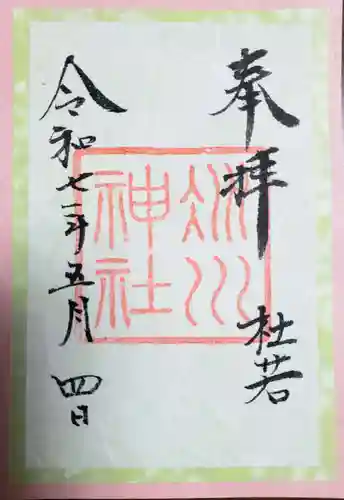 奉拝
杜若
神社
令和七年五月四日